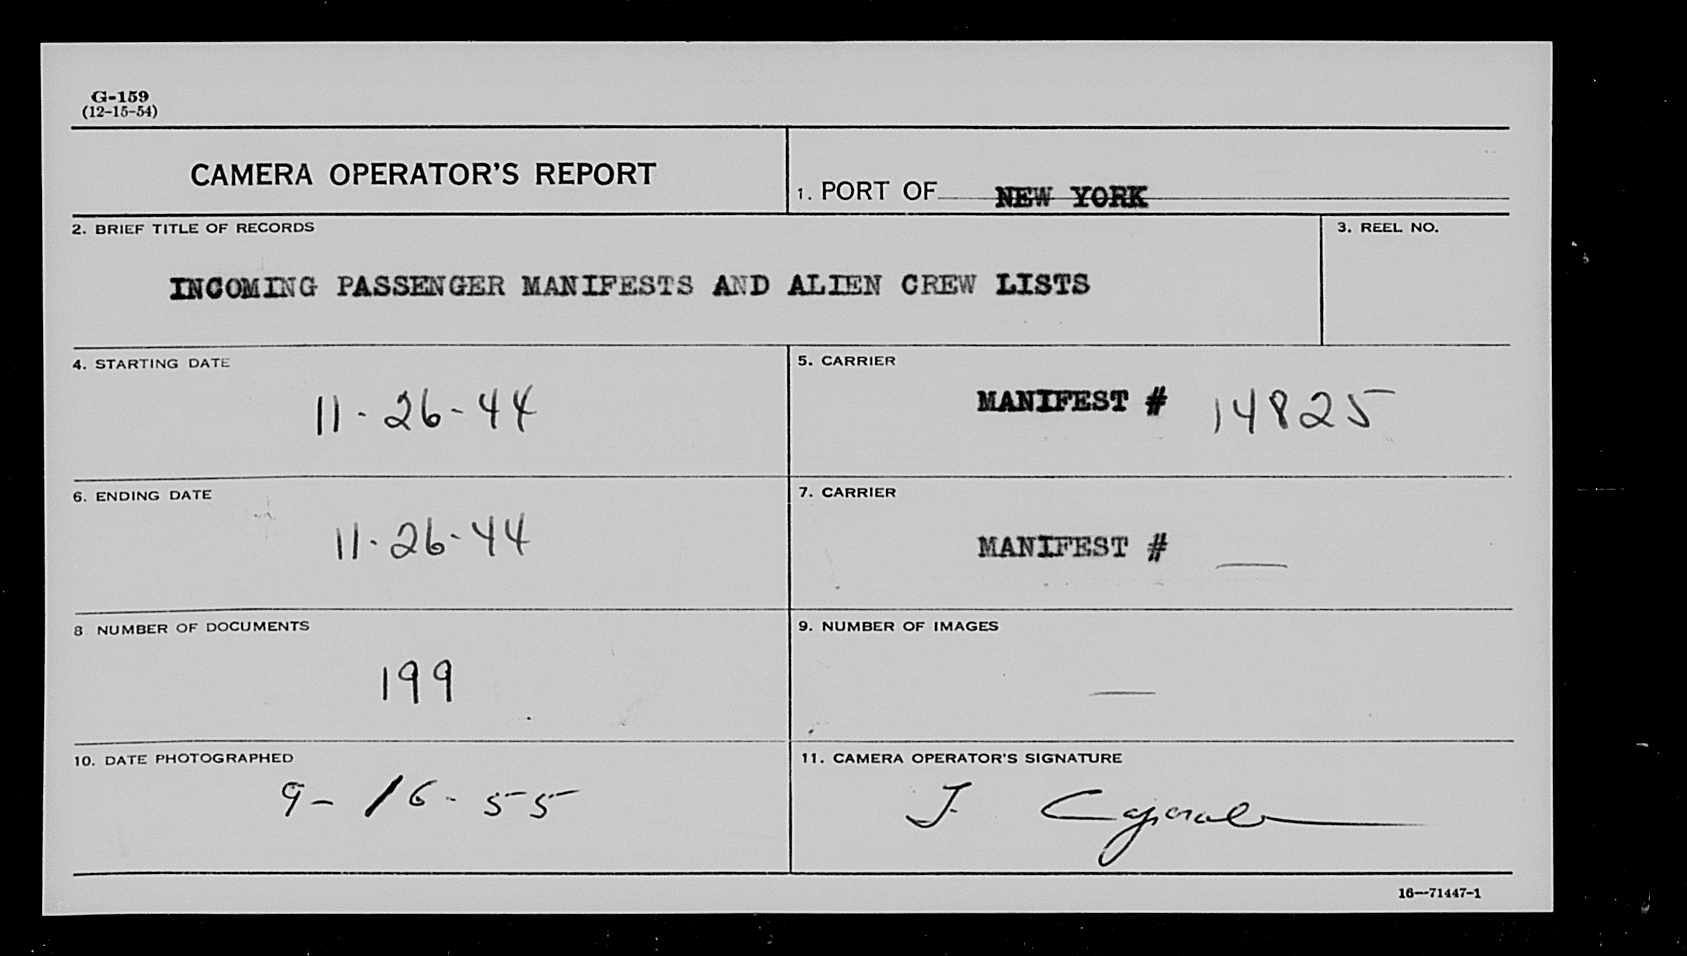 G-159
(12-15-54)
CAMERA OPERATOR'S REPORT
1. PORT OF NEW YORK
2. BRIEF TITLE OF RECORDS
3. REEL NO.
INCOMING PASSENGER MANIFESTS AND ALIEN CREW LISTS
4. STARTING DATE
5. CARRIER
11-26-44
MANIFEST # 14825
6. ENDING DATE
7. CARRIER
11-26-44
MANIFEST # —
8 NUMBER OF DOCUMENTS
9. NUMBER OF IMAGES
199
—
10. DATE PHOTOGRAPHED
11. CAMERA OPERATOR'S SIGNATURE
9-16-55
J.
16—71447-1